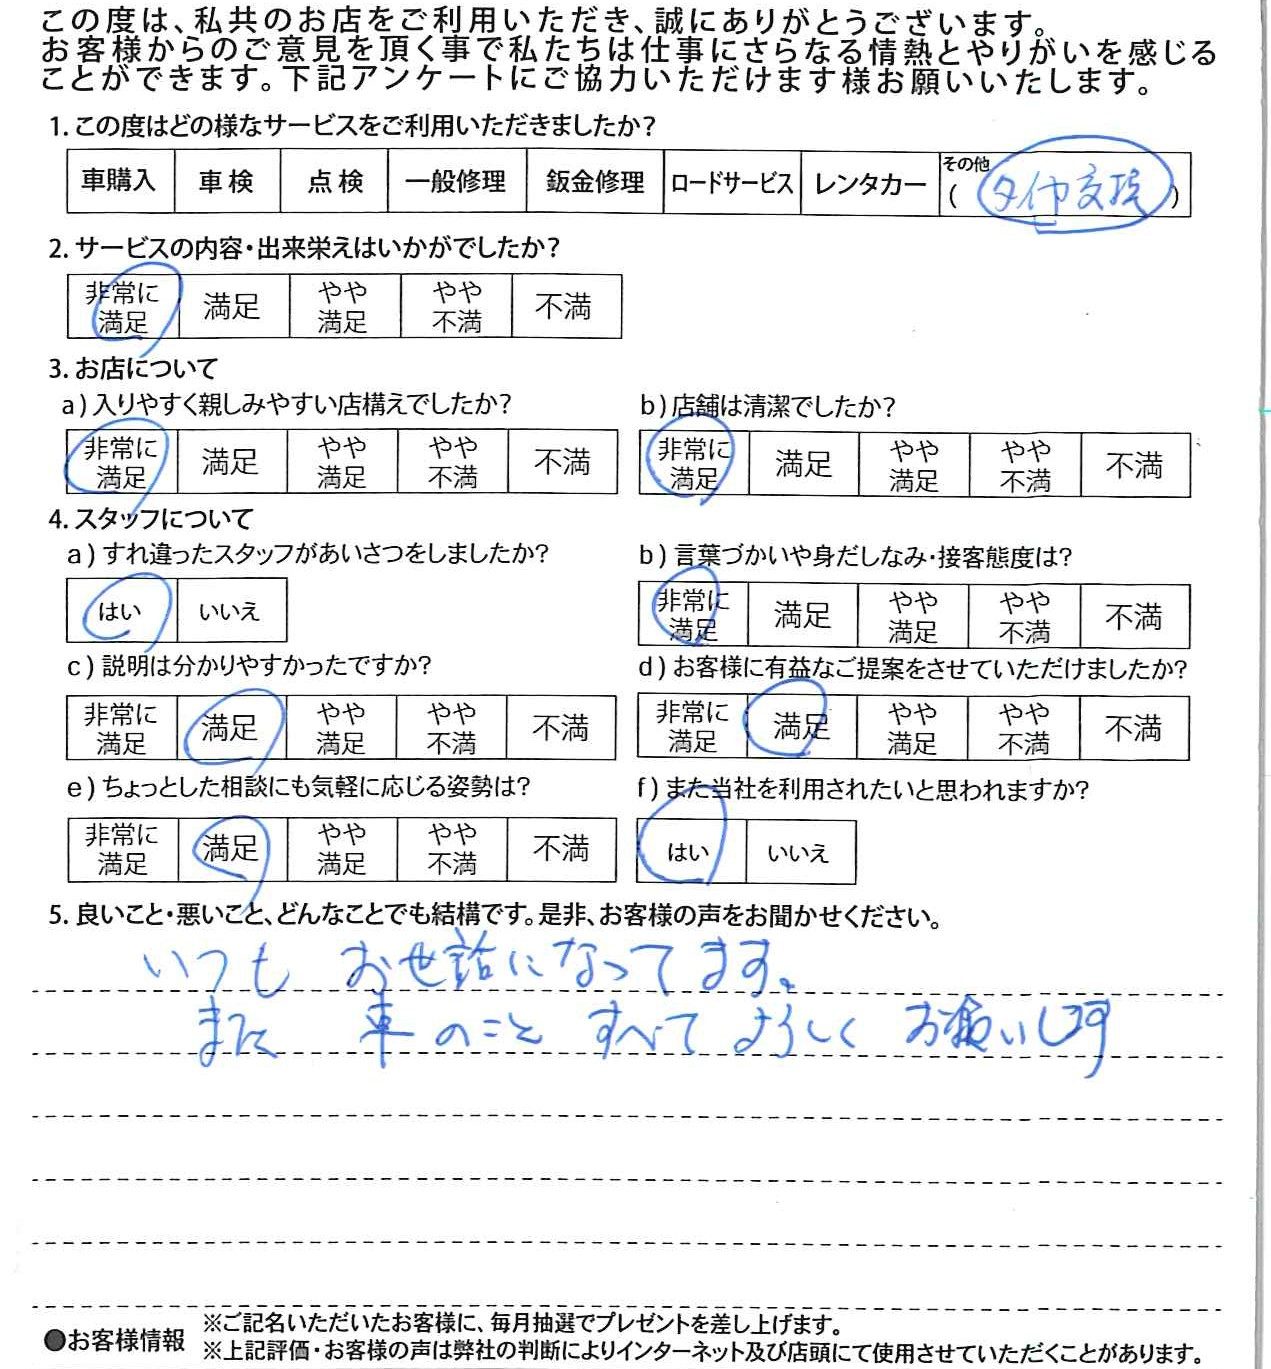 この度は、私共のお店をご利用いただき、誠にありがとうございます。
お客様からのご意見を頂く事で私たちは仕事にさらなる情熱とやりがいを感じる
ことができます。下記アンケートにご協力いただけます様お願いいたします。
1. この度はどの様なサービスをご利用いただきましたか？
車購入 車検 点検 一般修理 鈑金修理 ロードサービス レンタカー その他
( タイヤ交換 )
2. サービスの内容・出来栄えはいかがでしたか？
非常に満足 満足 やや満足 やや不満 不満
3. お店について
a) 入りやすく親しみやすい店構えでしたか？ b) 店舗は清潔でしたか？
非常に満足 満足 やや満足 やや不満 不満 非常に満足 満足 やや満足 やや不満 不満
4. スタッフについて
a) すれ違ったスタッフがあいさつをしましたか？ b) 言葉づかいや身だしなみ・接客態度は？
はい いいえ 非常に満足 満足 やや満足 やや不満 不満
c) 説明は分かりやすかったですか？ d) お客様に有益なご提案をさせていただけましたか？
非常に満足 満足 やや満足 やや不満 不満 非常に満足 満足 やや満足 やや不満 不満
e) ちょっとした相談にも気軽に応じる姿勢は？ f) また当社を利用されたいと思われますか？
非常に満足 満足 やや満足 やや不満 不満 はい いいえ
5. 良いこと・悪いこと、どんなことでも結構です。是非、お客様の声をお聞かせください。
いつも お世話になってます。
また 車のこと すべて よろしく お願いします
●お客様情報 ※ご記名いただいたお客様に、毎月抽選でプレゼントを差し上げます。
※上記評価・お客様の声は弊社の判断によりインターネット及び店頭にて使用させていただくことがあります。